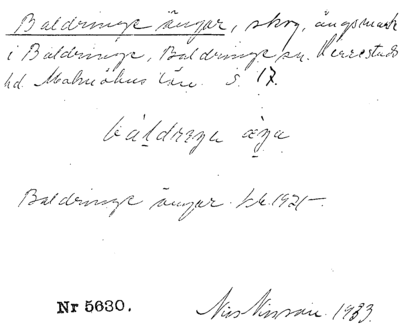 Baldringe ängar, skog, ängsmark
i Baldringe, Baldringe sn. Herrestads
hd. Malmöhus län. S. 17.
Baldringe ängar
Nr 5630. Nils Nilsson. 1933.